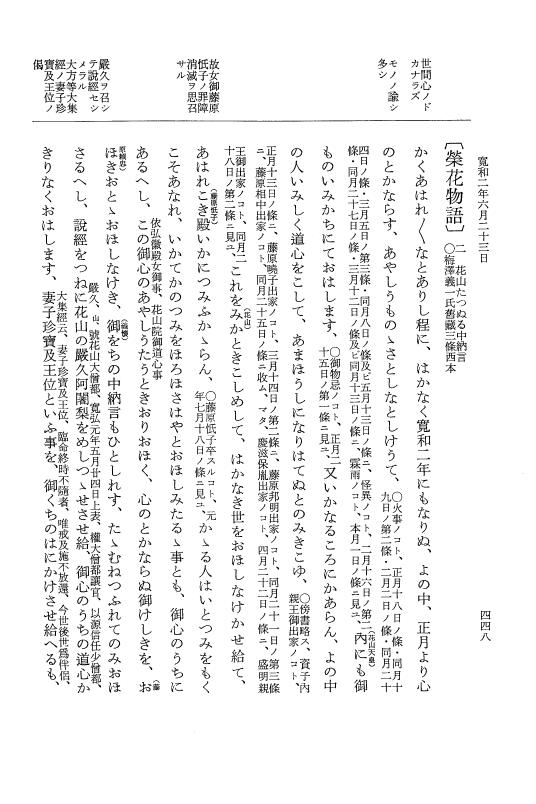 寛和二年六月二十三日
四四八
世間心ノド
カナラズ
モノノ諭シ
多シ
故女御藤原
忯子ノ罪障
消滅ヲ思召
サル
嚴久ヲ召シ
テ說經セシ
メラル
大方等大集
經ノ妻子珍
寶及王位ノ
偈
〔榮花物語〕
二 花山たつぬる中納言
○梅澤義一氏舊藏三條西本
かくあはれ〱なとありし程に、はかなく寛和二年にもなりぬ、よの中、正月より心
のとかならす、あやしうものゝさとしなとしけうて、
○火事ノコト、正月十八日ノ條・同月十
九日ノ第二條・二月二日ノ條・同月二十
四日ノ條・三月五日ノ第三條・同月八日ノ條及ビ五月十三日ノ條ニ、怪異ノコト、二月十六日ノ第二
條・同月二十七日ノ條・三月十二日ノ條及ビ同月十三日ノ條ニ、霖雨ノコト、本月一日ノ條ニ見ユ、
內にも御
(花山天皇)
ものいみかちにておはします、
○御物忌ノコト、正月二
十五日ノ第一條ニ見ユ、
又いかなるころにかあらん、よの中
の人いみしく道心をこして、あまほうしになりはてぬとのみきこゆ、
○傍書略ス、資子內
親王御出家ノコト、
正月十三日ノ條ニ、藤原曉子出家ノコト、三月十四日ノ第二條ニ、藤原邦明出家ノコト、同月二十一日ノ第三條
ニ、藤原相中出家ノコト、同月二十五日ノ條ニ收ム、マタ、慶滋保胤出家ノコト、四月二十二日ノ條ニ、盛明親
王御出家ノコト、同月二
十八日ノ第二條ニ見ユ、
これをみかときこしめして、はかなき世をおほしなけかせ給て、
(花山)
あはれこき殿いかにつみふかゝらん、
(藤原忯子)
○藤原忯子卒スルコト、元
年七月十八日ノ條ニ見ユ、
かゝる人はいとつみをもく
こそあなれ、いかてかのつみをほろほさはやとおほしみたるゝ事とも、御心のうちに
あるへし、この御心のあやしうたうときおりおほく、心のとかならぬ御けしきを、お
依弘徽殿女御事、花山院御道心事
(藤
原賴忠)
ほきおとゝおほしなけき、御をちの中納言もひとしれす、たゝむねつふれてのみおほ
(義懷)
さるへし、說經をつねに花山の嚴久阿闍梨をめしつゝせさせ給、御心のうちの道心か
嚴久、山、號花山大僧都、寬弘元年五月廿四日上表、權大僧都讓官、以源信任少僧都、
きりなくおはします、妻子珍寶及王位といふ事を、御くちのはにかけさせ給へるも、
大集經云、妻子珍寶及王位、臨命終時不隨者、唯戒及施不放逸、今世後世爲伴侶、